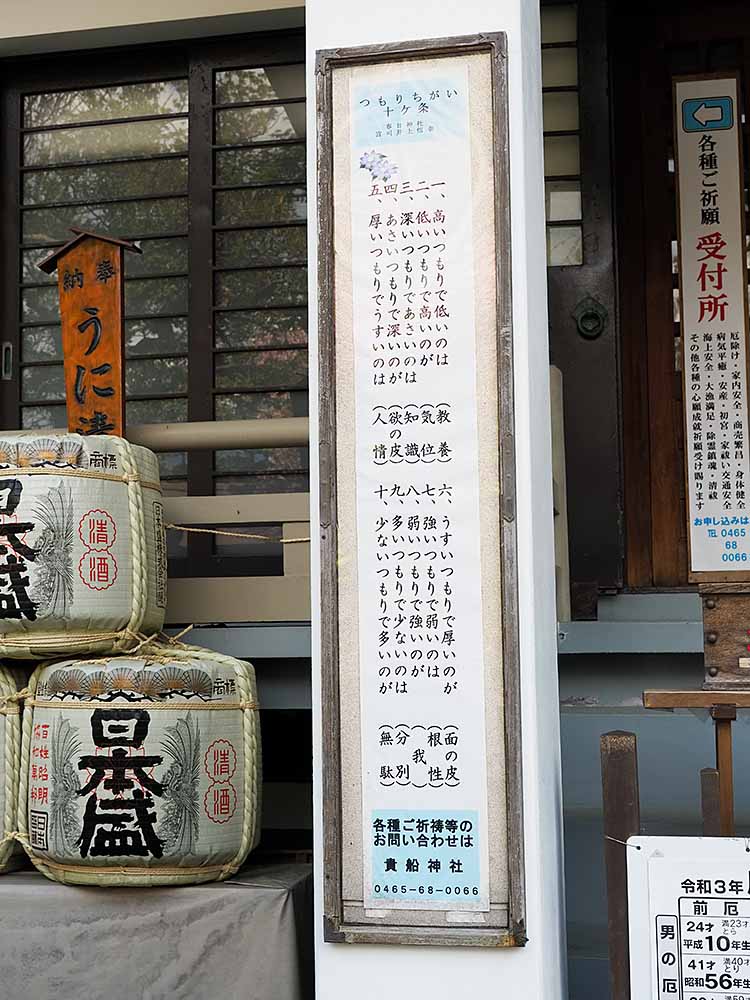 つもりちがい
十ケ条
春日神社
一、高いつもりで低いのは(教養)
二、低いつもりで高いのが(気位)
三、深いつもりであさいのは(知識)
四、あさいつもりで深いのが(欲の皮)
五、厚いつもりでうすいのは(人情)
六、うすいつもりで厚いのが(面の皮)
七、強いつもりで弱いのは(根性)
八、弱いつもりで強いのが(我)
九、多いつもりで少ないのは(分別)
十、少ないつもりで多いのが(無駄)
各種ご祈祷等の
お問い合わせは
貴船神社
0465-68-0066
各種ご祈願
受付所
厄除け・家内安全・商売繁昌・身体健全
病気平癒・安産・初宮・家祓い交通安全
海上安全・大漁満足・除霊鎮魂・清祓
その他各種の心願成就祈願受け賜ります
お申し込みは
TEL 0465
68
0066
奉納
うに清
商標
清酒
日本盛
商標
清酒
日本盛
百姓昭明
協和萬邦
令和3年
前厄
男の厄
24才
満23才
とら
平成10年生
41才
満40才
とり
昭和56年生